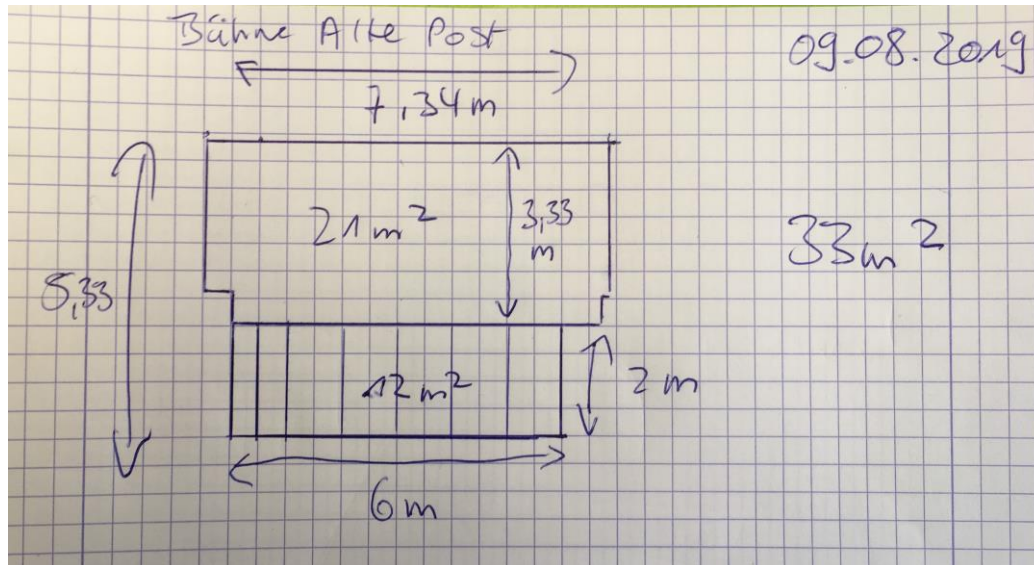 Bühne Alte Post
09.08.2019
7,34m
21m²
3,33
m
33m²
5,33
12m²
2m
6m